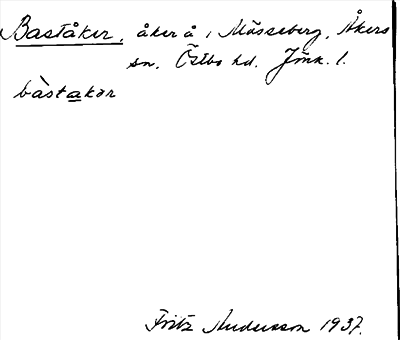 Baståker, åker å i Mösseberg, Åkers
sn. Östbo hd. Jönk. l.
bàstakər
Fritz Andersson 1937.